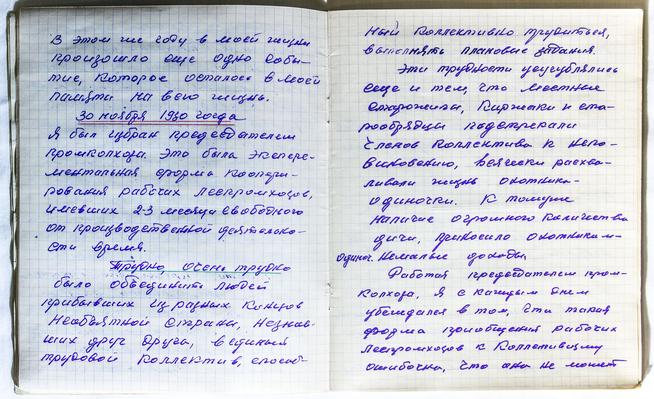 В этом же году в моей жизни
произошло еще одно собы-
тие, которое осталось в моей
памяти на всю жизнь.
30 ноября 1930 года
Я был избран председателем
промколхоза. Это была экспере-
ментальная форма коопери-
рования рабочих леспромхозов,
имевших 2-3 месяца свободного
от производственной деятельно-
сти время.
Трудно, очень трудно
было объединить людей
прибывших из разных концов
Необъятной Страны, Незнав-
ших друг друга, в единый
трудовой коллектив, способ-
ный коллективно трудиться,
выполнять плановые задания.
Эти трудности усугублялись
еще и тем, что местные
старожилы, Киржаки и ста-
рообрядцы подстрекали
членов коллектива к непо-
виновению, всячески расхва-
ливали жизнь охотника-
одиночки. К тому же
наличие огромного количества
дичи, приносило охотникам-
одиноч. Немалые доходы.
Работая председателем пром-
колхоза, я с каждым днем
убеждался в том, что такая
форма приобщения рабочих
леспромхозов к коллективизму
ошибочна, что она не может